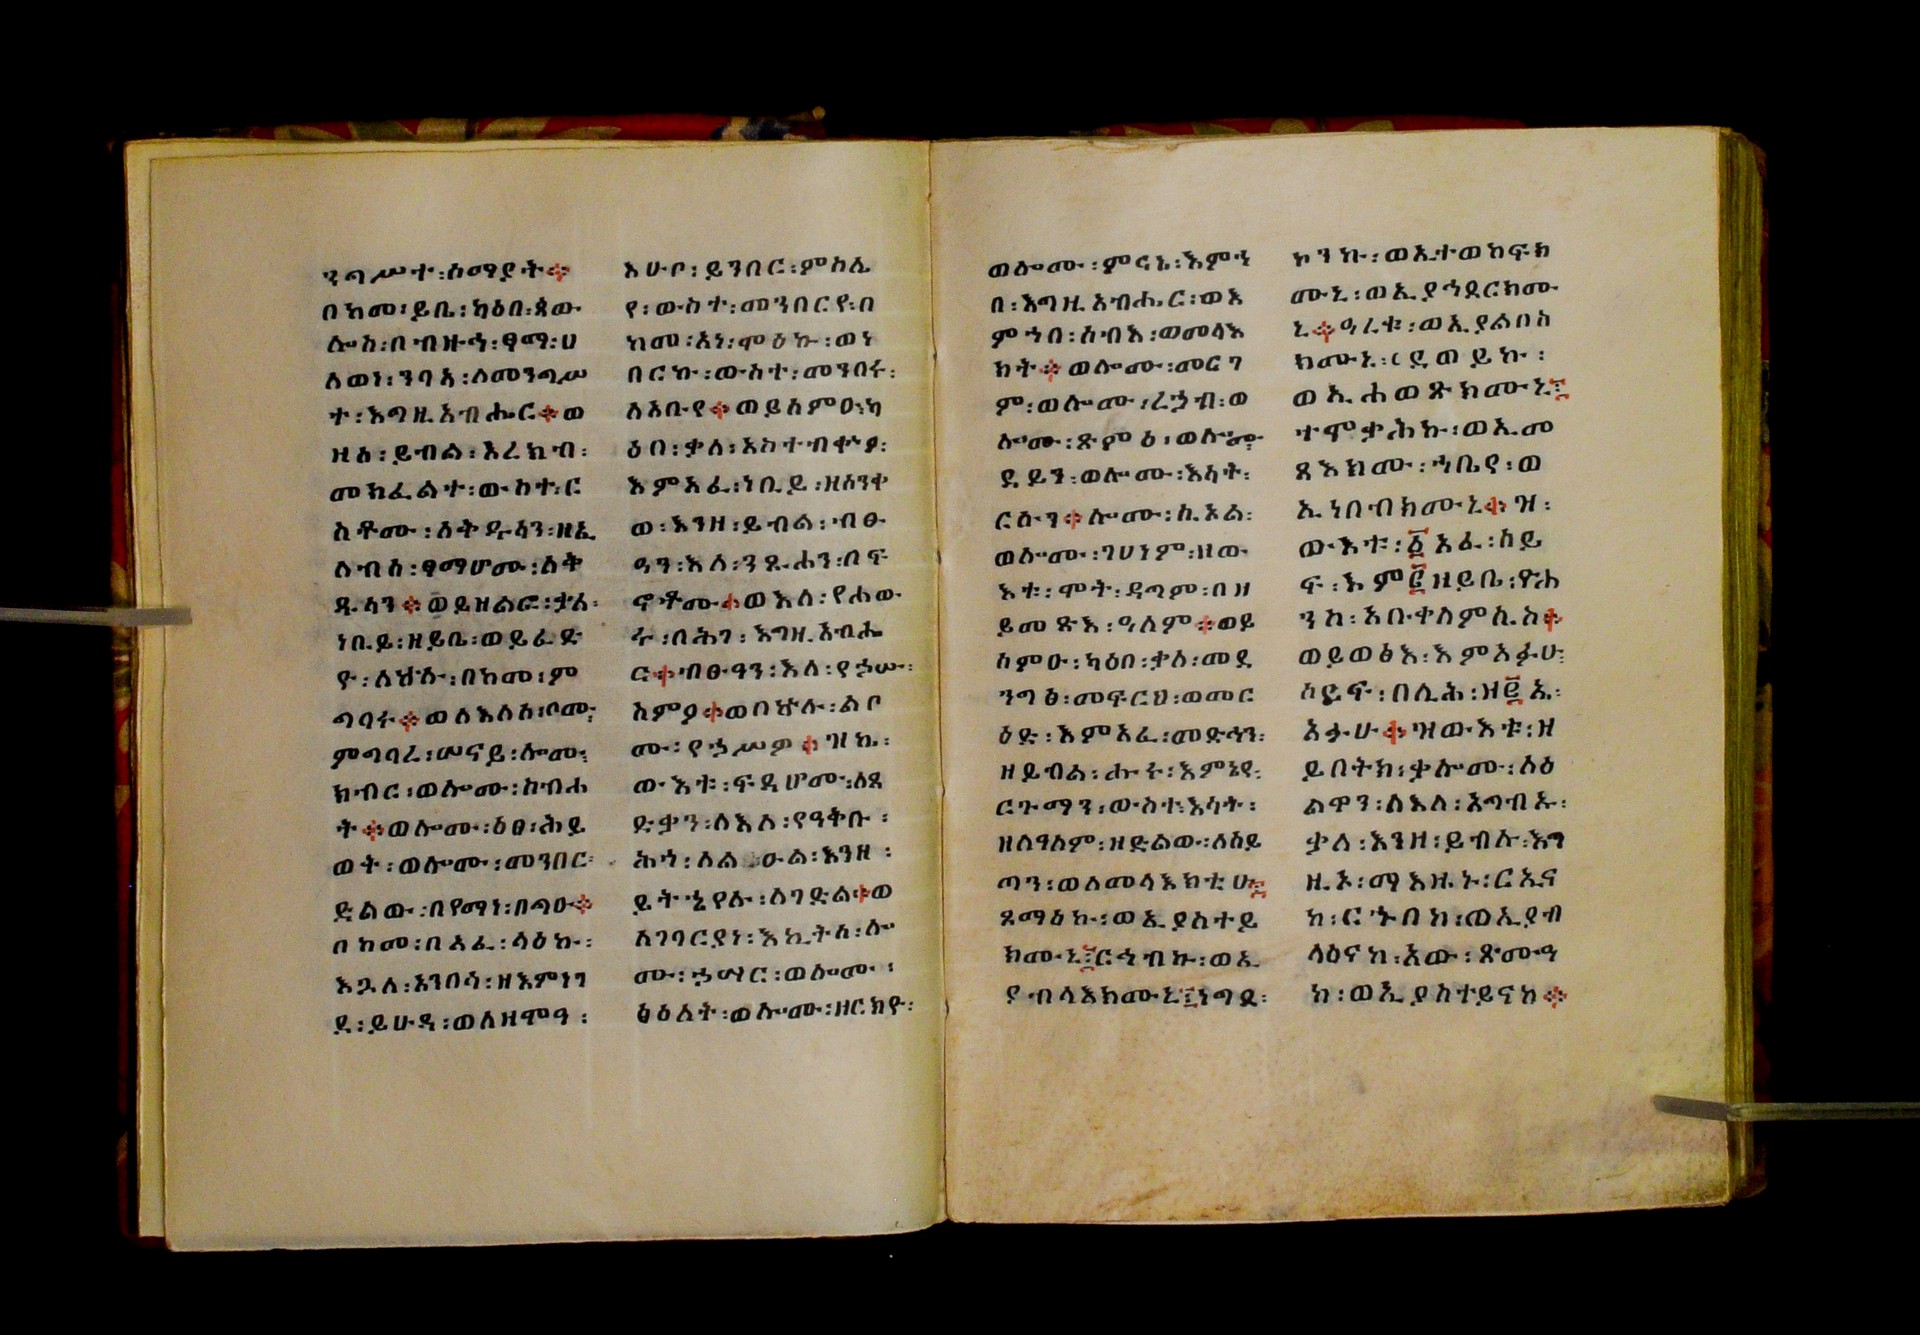 ንግሥተ፡ሰማያት።
በከመ፡ይቤ፡ካዕበ፡ጳው
ሎስ፡በብዙኅ፡ፃማ፡ሀ
ለወነ፡ንባእ፡ለመንግሥ
ተ፡እግዚአብሔር።ወ
ዘሰ፡ይብል፡እረክብ፡
መክፈልተ፡ውስተ፡ር
ስቶሙ፡ለቅዱሳን፡ዘኢ
ለብሰ፡ፃማሆሙ፡ለቅ
ዱሳን።ወይዘልፎ፡ቃለ፡
ነቢይ፡ዘይቤ፡ወይፈድ
ዮ፡ለኵሉ፡በከመ፡ም
ግባሩ።ወለእለሰ፡ቦሙ፡
ምግባረ፡ሠናይ፡ሎሙ፡
ክብር፡ወሎሙ፡ስብሐ
ት።ወሎሙ፡ዕፀ፡ሕይ
ወት፡ወሎሙ፡መንበር፡
ድልው፡በየማነ፡በግዑ።
በከመ፡በአፈ፡ላዕኩ፡
እጓለ፡አንበሳ፡ዘእምነገ
ደ፡ይሁዳ፡ወለዘሞዓ፡
እሁቦ፡ይንበር፡ምስሌ
የ፡ውስተ፡መንበርየ፡በ
ከመ፡አነ፡ሞዕኩ፡ወነ
በርኩ፡ውስተ፡መንበሩ፡
ለአቡየ።ወይሰምዑ፡ካ
ዕበ፡ቃለ፡አስተብቍዖ፡
እምአፈ፡ነቢይ፡ዘሰንቀ
ወ፡እንዘ፡ይብል፡ብፁ
ዓን፡እለ፡ንጹሐን፡በፍ
ኖቶሙ።ወእለ፡የሐው
ሩ፡በሕገ፡እግዚአብሔ
ር።ብፁዓን፡እለ፡የኃሡ፡
ስምዖ።ወበኵሉ፡ልቦ
ሙ፡የኃሥዎ።ዝኬ፡
ውእቱ፡ፍዳሆሙ፡ለጻ
ድቃን፡ለእለ፡የዓቅቡ፡
ሕገ፡ለልዑል፡እንዘ፡
ይትኄየሉ፡ለገድል።ወ
ለገባርያነ፡እኪትሰ፡ሎ
ሙ፡ኃሣር፡ወሎሙ፡
ፅዕለት፡ወሎሙ፡ዘርክዮ፡
ወሎሙ፡ምናኔ፡እምኀ
በ፡እግዚአብሔር፡ወእ
ምኀበ፡ሰብእ፡ወመላእ
ክት።ወሎሙ፡መርገ
ም፡ወሎሙ፡ረኃብ፡ወ
ሎሙ፡ጽምዕ፡ወሎሙ፡
ደይን፡ወሎሙ፡እሳት፡
ርሱን።ሎሙ፡ሲኦል፡
ወሎሙ፡ገሀነም፡ዘው
እቱ፡ሞት፡ዳግም፡በዘ
ይመጽእ፡ዓለም።ወይ
ሰምዑ፡ካዕበ፡ቃለ፡መደ
ንግፅ፡መፍርህ፡ወመር
ዕድ፡እምአፈ፡መድኅን፡
ዘይብል፡ሑሩ፡እምኔየ፡
ርጉማን፡ውስተ፡እሳት፡
ዘለዓለም፡ዘድልው፡ለሰይ
ጣን፡ወለመላእክቲሁ፤
ጸማዕኩ፡ወኢያስተይ
ክሙኒ፤ርኅብኩ፡ወኢ
ያብላእክሙኒ፤ነግደ፡
ኮንኩ፡ወኢተወከፍክ
ሙኒ፡ወኢያኅደርክሙ
ኒ።ዓረቁ፡ወኢያልበስ
ክሙኒ፡ደወይኩ፡
ወኢሐወጽክሙኒ፤
ተሞቃሕኩ፡ወኢመ
ጻእክሙ፡ኀቤየ፡ወ
ኢነበብክሙኒ።ዝ፡
ውእቱ፡፩አፈ፡ሰይ
ፍ፡እም፪ዘይቤ፡ዮሐ
ንስ፡አቡቀለምሲስ።
ወይወፅእ፡እምአፉሁ፡
ሰይፍ፡በሊሕ፡ዘ፪አ፡
አፉሁ።ዝውእቱ፡ዘ
ይበትክ፡ቃሎሙ፡ለዕ
ልዋን፡ለእለ፡አግብኡ፡
ቃለ፡እንዘ፡ይብሉ፡እግ
ዚኦ፡ማእዜኑ፡ርኢና
ከ፡ርኁበከ፡ወኢያብ
ላዕናከ፡አው፡ጽሙዓ
ከ፡ወኢያስተይናከ።